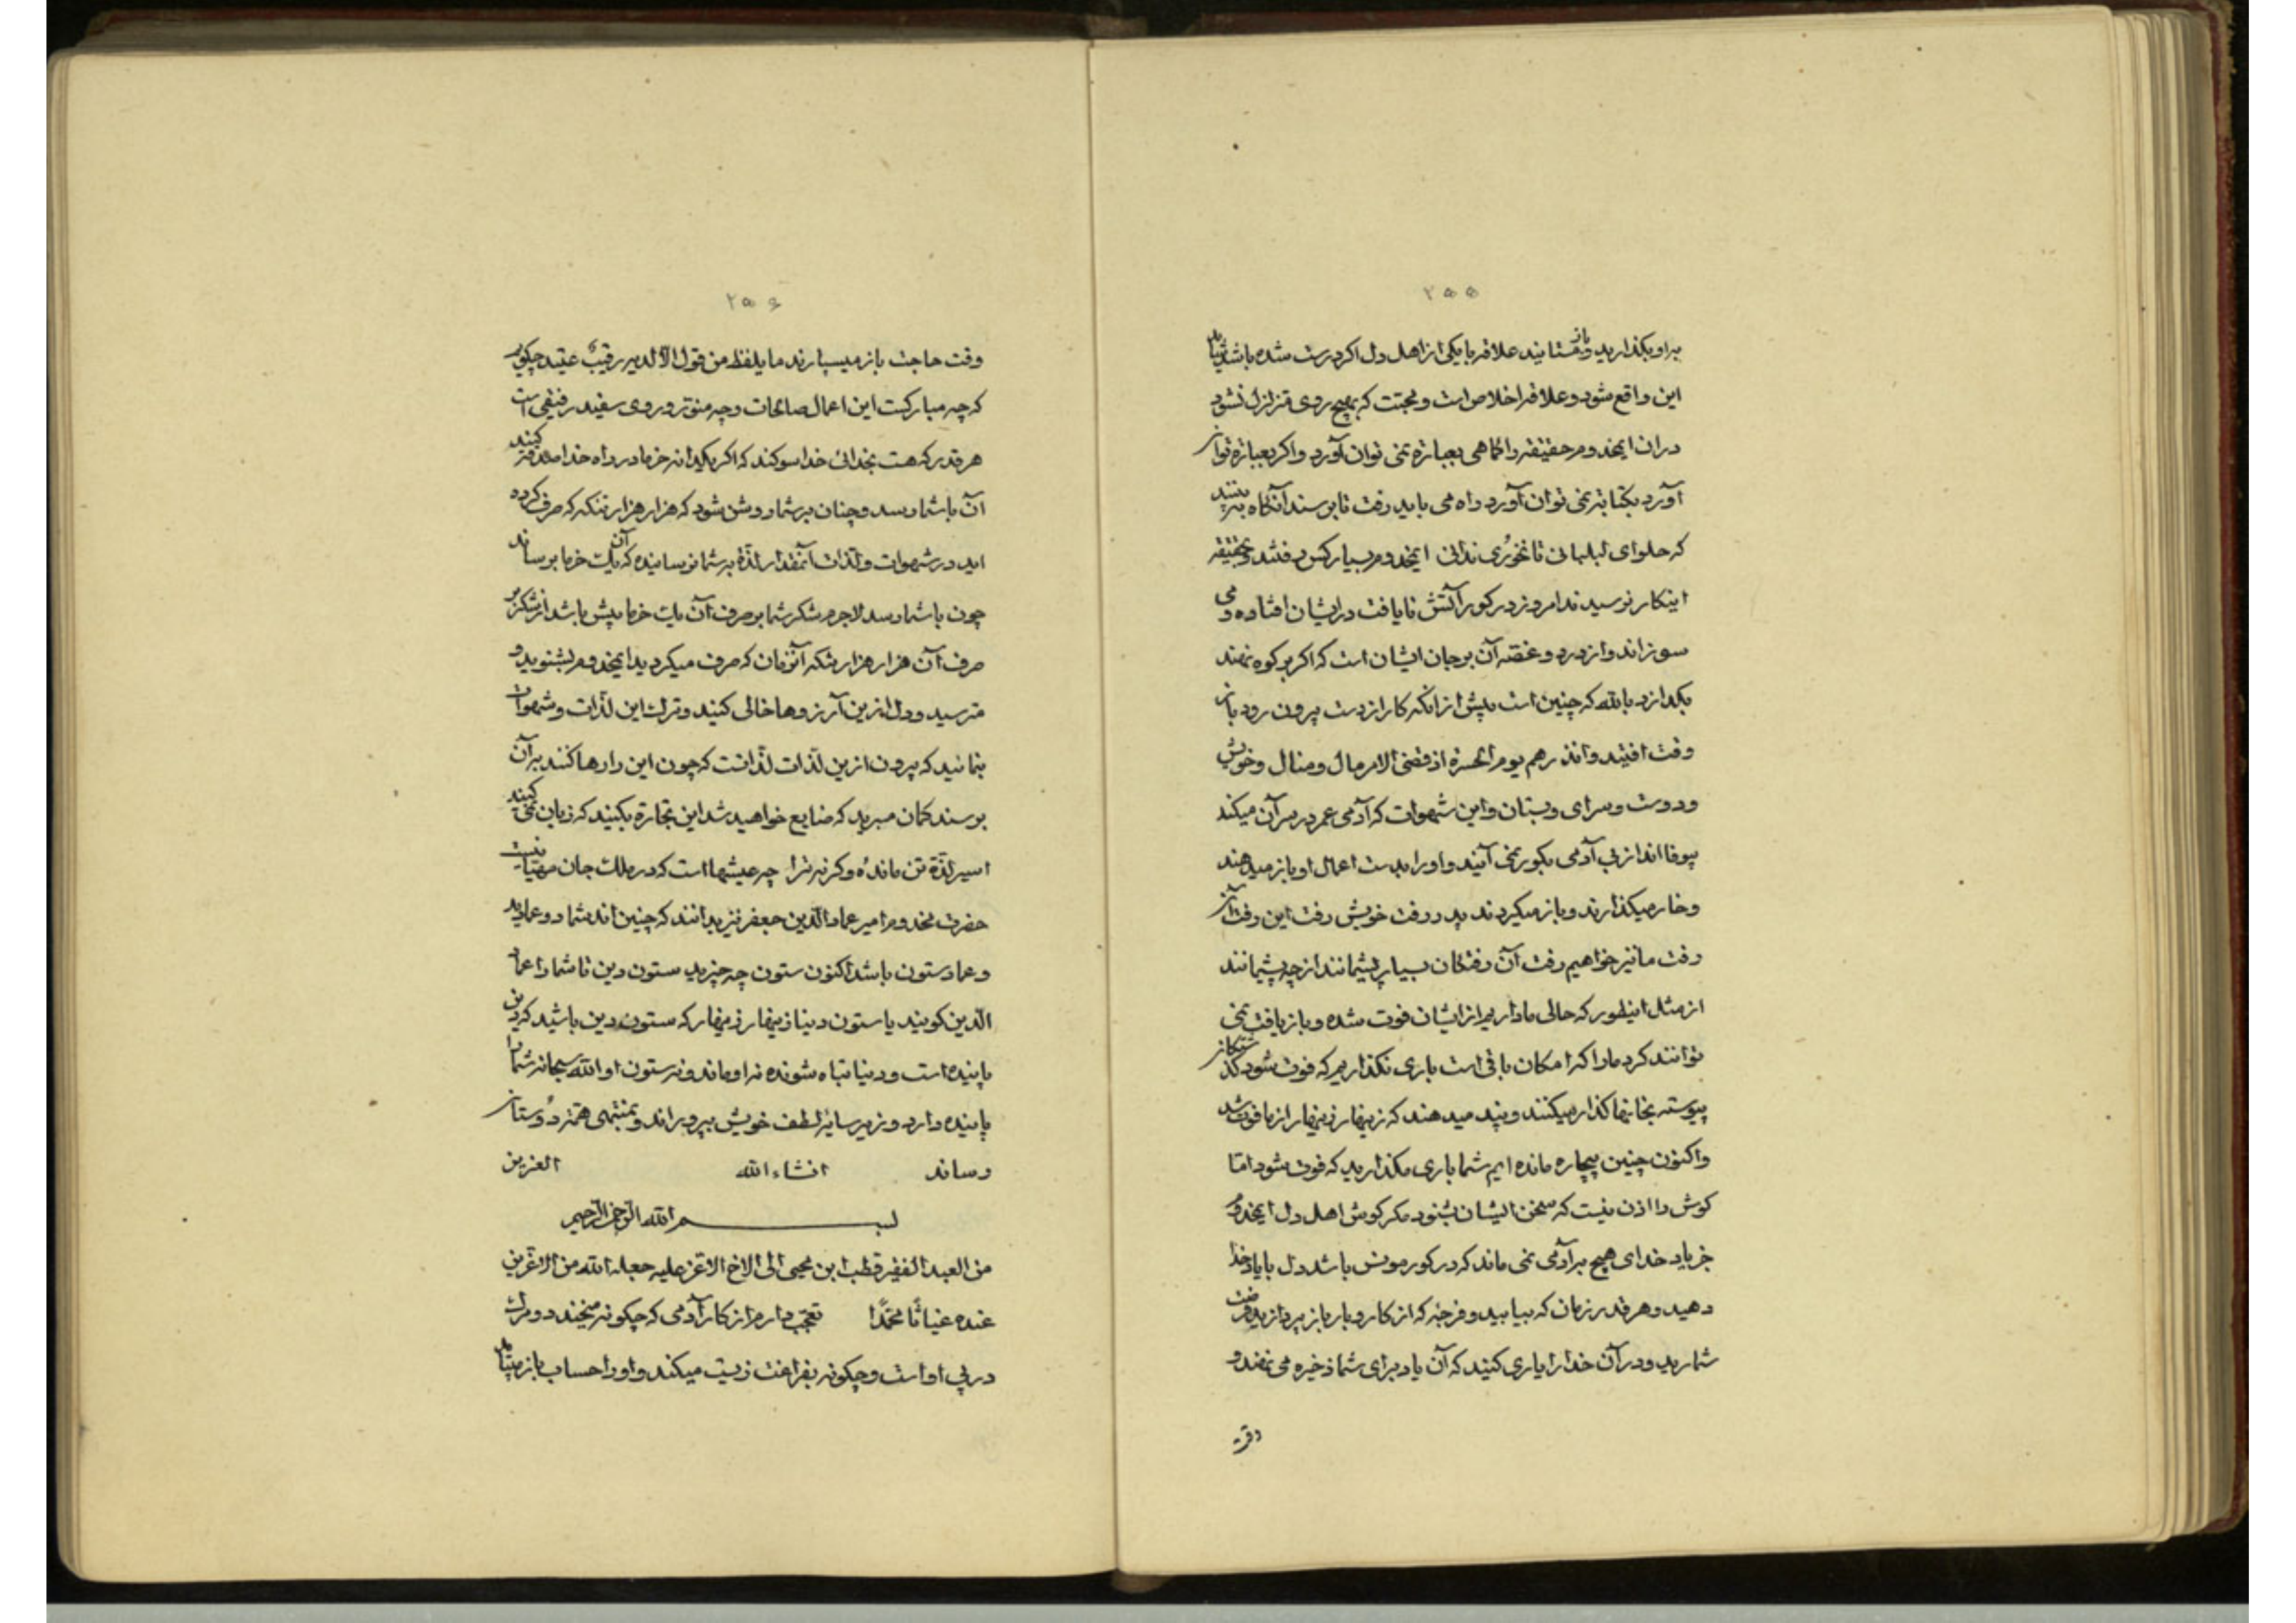 ۲۵۵
براو بکذارید و باز ستانید علاقه با یکی از اهل دل اکر درست شده باشد شاید
این واقع شود و علاقه اخلاص است و محبت که بهیچ روی متزلزل نشود
دران ایمخدوم حقیقه را کاهی بعبارة نمی توان آورد و اکر بعبارة توان
آورد بکتابة نمی توان آورد راه می باید رفت تا برسند آنکاه ببینند
که حلوای لبلبانی تا نخوری ندانی ایمخدوم بسیار کس رفتند و بحقیقه
اینکار نرسیدند امروز در کور آتش نایافت در ایشان افتاده و می
سوزاند و از درد و غصه آن بر جان ایشان است که اکر بر کوه نهند
بکدازد بالله که چنین است پیش از انکه کار از دست بیرون رود باز
وقت افتید وانذرهم یوم الحسرة اذ قضی الامر مال و منال و خویش
و دوست و سرای و بستان و این شهوات که آدمی عمر در سر آن میکند
بیوفا اند از پی آدمی بکور نمی آیند و او را بدست اعمال او باز میدهند
و خار میکذارند و باز میکردند پدر رفت خویش رفت این رفت آن
رفت ما نیز خواهیم رفت آن رفتکان بسیار پشیمانند از چه پشیمانند
از مثل اینطور که حالی ما داریم از ایشان فوت شده و باز یافت نمی
توانند کرد ما را که امکان باقی است باری نکذاریم که فوت شود کذشتکان
پیوسته بخانها کذار میکنند و پند میدهند که زینهار زینهار از ما فوت شد
و اکنون چنین بیچاره مانده ایم شما باری مکذارید که فوت شود اما
کوش را اذن نیست که سخن ایشان بشنود مکر کوش اهل دل ایمخدوم
جز یاد خدای هیچ بر آدمی نمی ماند که در کور مونس باشد دل با یاد خدا
دهید و هر قدر زمان که بیابید و فرجه که از کار و بار باز پردازید فرصت
شمارید و در آن خدا را یاری کنید که آن یاد برای شما ذخیره می نهند و
۲۵۶
وقت حاجت باز میسپارند ما یلفظ من قول الا لدیه رقیب عتید چکویم
که چه مبارکست این اعمال صالحات و چه منور و روی سفید رفیقی است
هر قدر که هست بخدائی خدا سوکند که اکر یکدانه خرما در راه خدا صدقه کنید
آن با شما رسد و چنان بر شما روشن شود که هزار هزار تنکه که صرف کرده
اید در شهوات و لذات آنمقدار لذة بشما نرسانیده که آن یک خرما برساند
چون با شما رسد لاجرم شکر شما بر صرف آن یک خرما بیش باشد از شکر بر
صرف آن هزار هزار تنکه آنزمان که صرف میکردید ایمخدوم بشنوید و
مترسید و دل ازین آرزوها خالی کنید و ترک این لذات و شهوات
بنمائید که بیرون ازین لذات لذاتست که چون این را رها کنند بر آن
برسند کمان مبرید که ضایع خواهید شد این تجارة بکنید که زیان نمی کنید
اسیر لذة تن مانده و کرنه ترا چه عیشها است که در ملک جان مهیا نیست
حضرت مخدوم امیر عماد الدین جعفر نیز بدانند که چنین اند شما رو عمادید
و عماد ستون باشد اکنون ستون چه چیزید ستون دین تا شما را عماد
الدین کویند یا ستون دنیا زینهار زینهار که ستون دین باشید که دین
پاینده است و دنیا تباه شونده نه او ماند و نه ستون او الله سبحانه شما را
پاینده دارد و زیر سایه لطف خویش بپروراند و بمنتهی همه دوستان
رساند انشاء الله العزیز
بسم الله الرحمن الرحیم
من العبد الفقیر قطب ابن محیی الی الاخ الاعز علیه جعله الله من الاعزین
عنده غیاثا محمدا تعجب دارم از کار آدمی که چکونه میخندد و مرک
در پی او است و چکونه بفراغت زیست میکند و او را حساب باز میباید